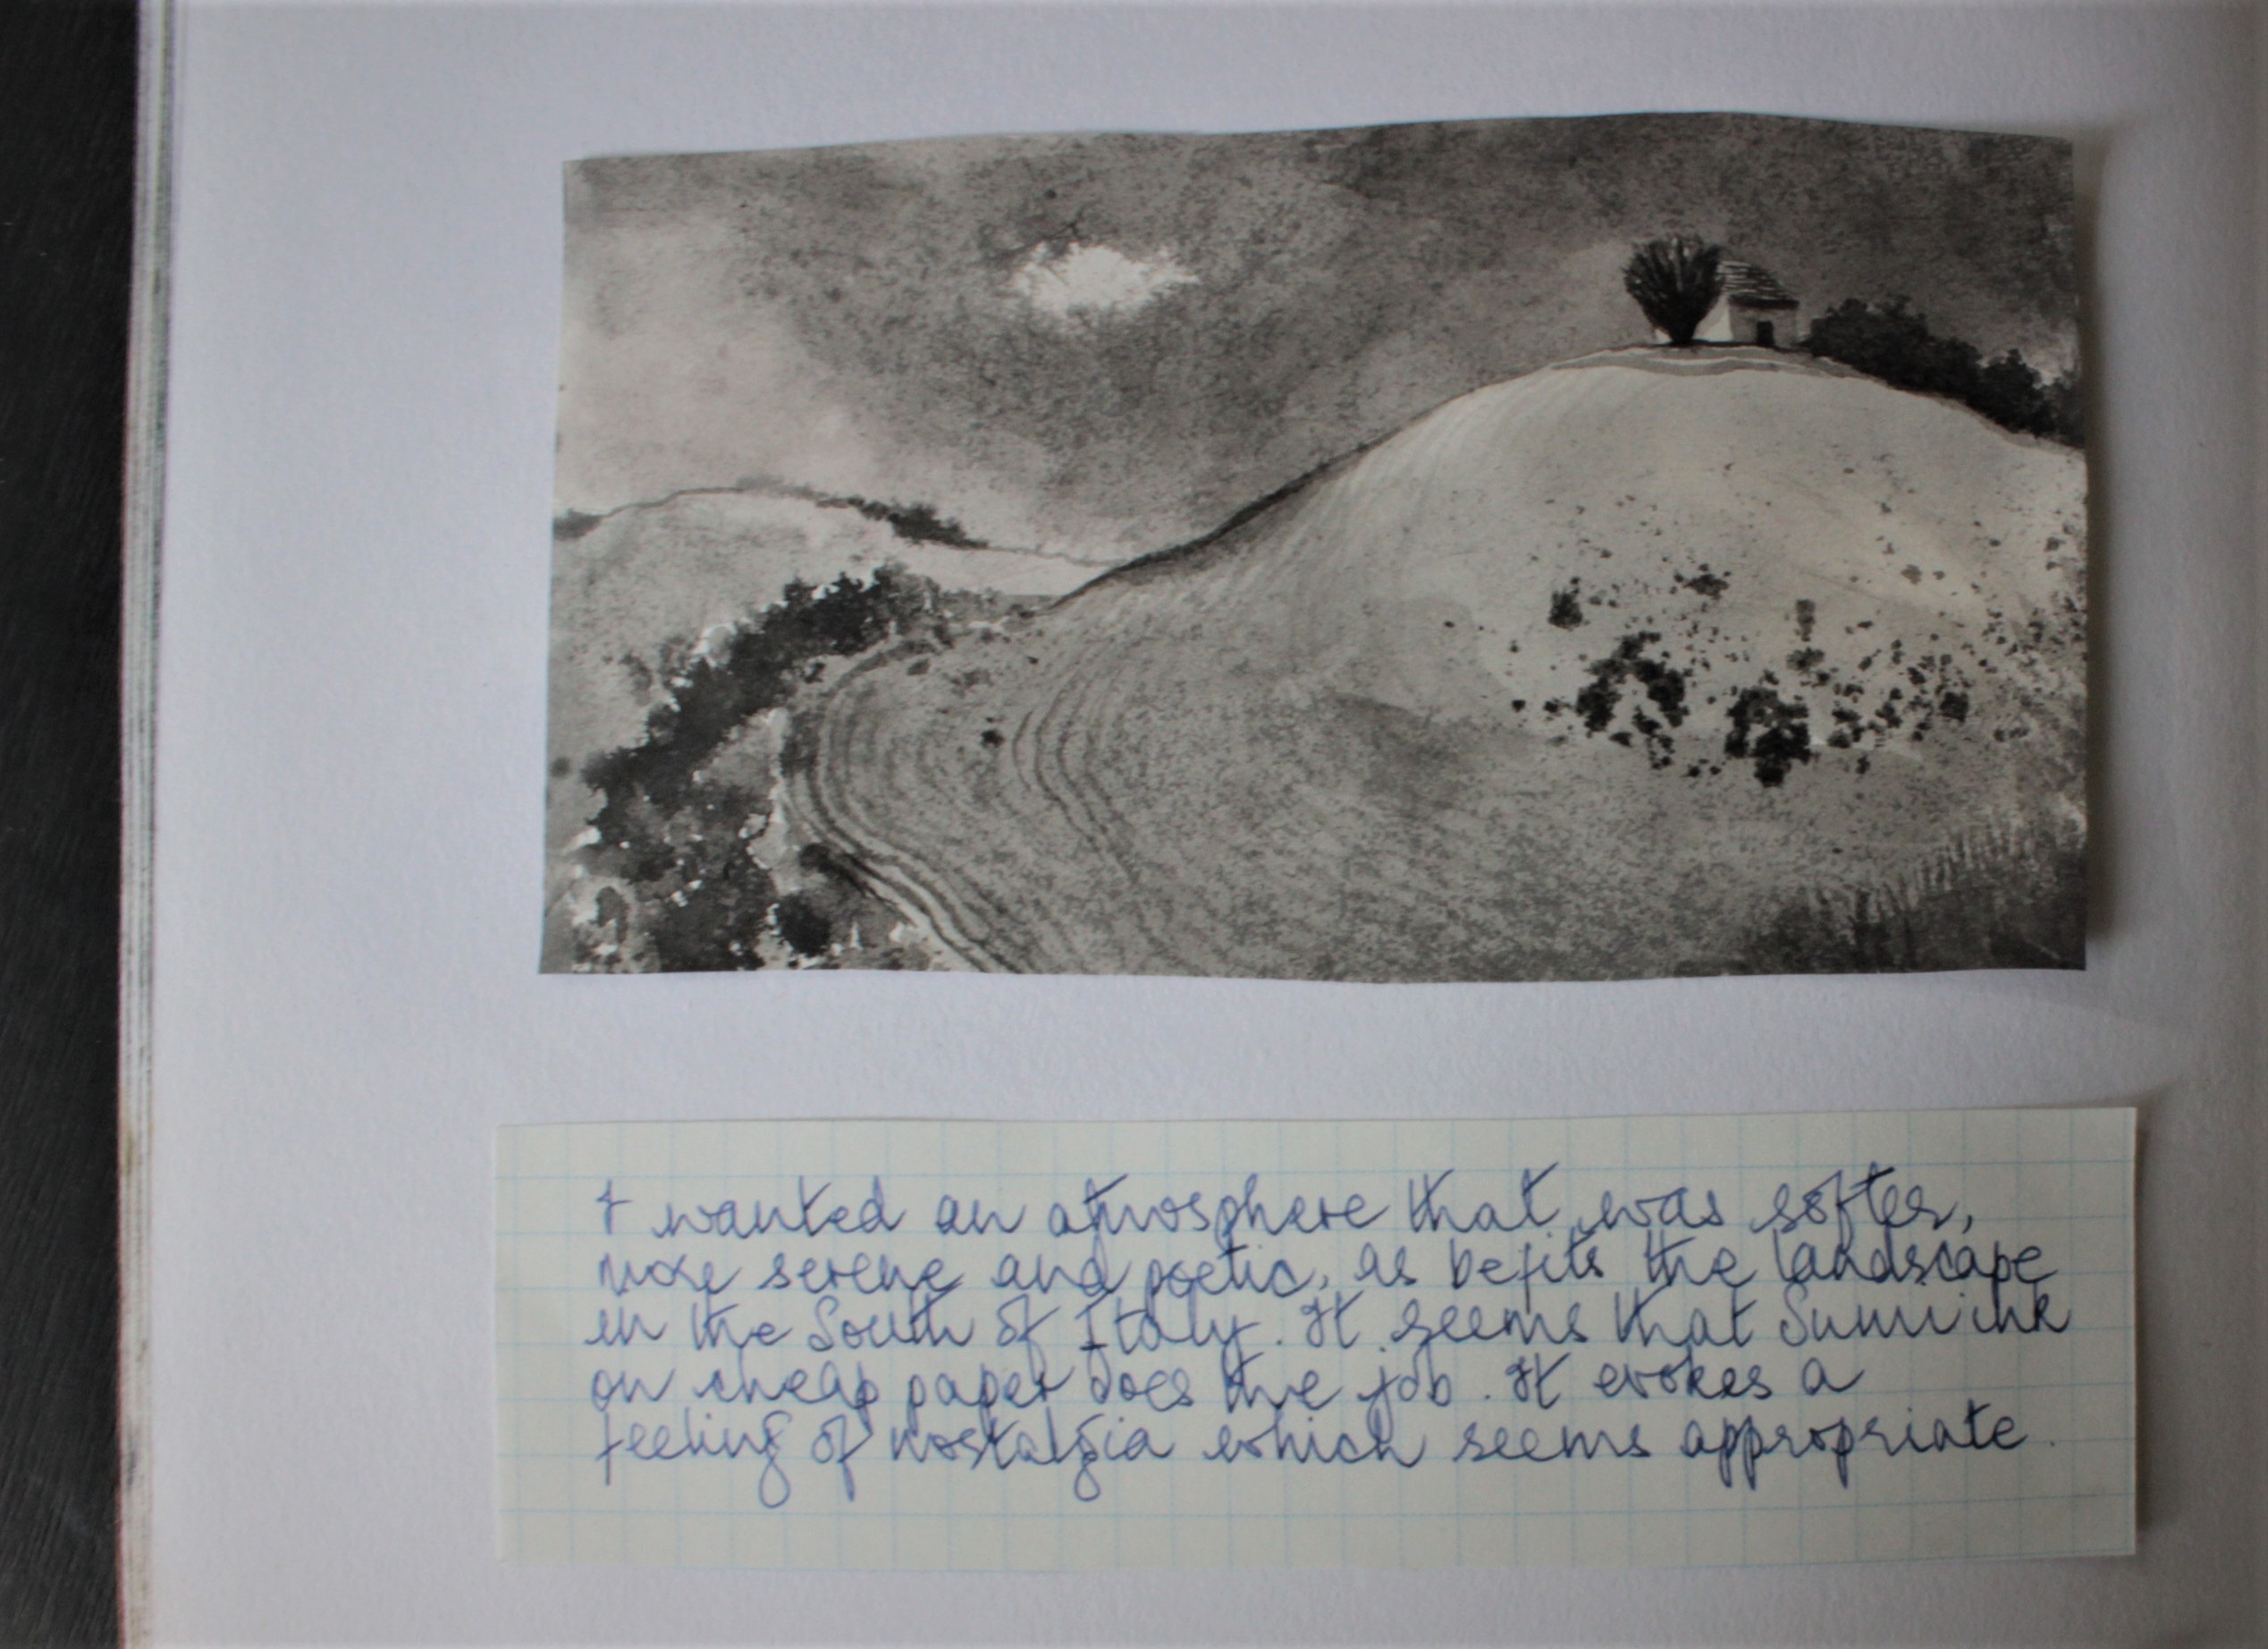 I wanted an atmosphere that was softer,
more serene and poetic, as befits the landscape
in the South of Italy. It seems that Sumi ink
on cheap paper does the job. It evokes a
feeling of nostalgia which seems appropriate.